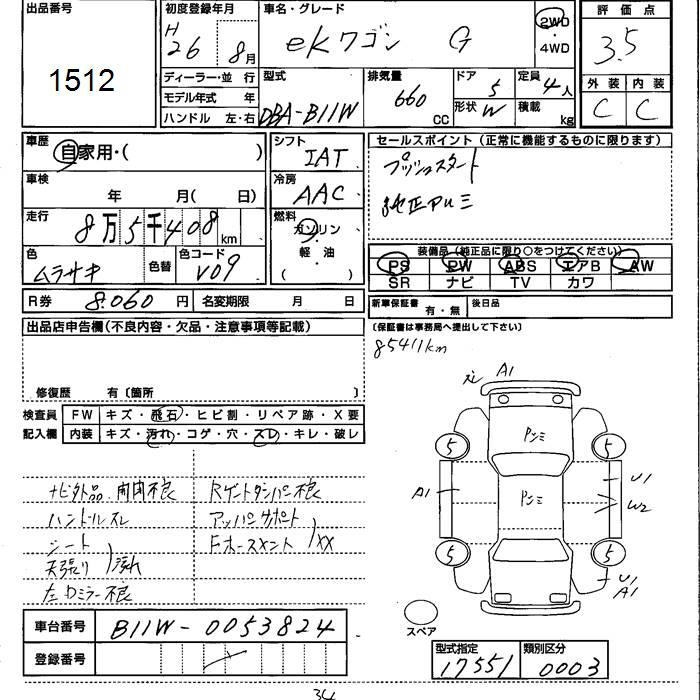 出品番号
1512
初度登録年月
H
26 8月
車名・グレード
eKワゴン G
2WD
・
4WD
評価点
3.5
外装 内装
C C
ディーラー・並行
モデル年式 年
ハンドル 左・右
型式
DBA-B11W
排気量
660
CC
ドア
5
形状 W
定員
4人
積載
kg
車歴
自家用・( )
車検
年 月( 日)
走行
8万5千408
km
色
ムラサキ
色替
色コード
V09
シフト
IAT
冷房
AAC
燃料
ガソリン
軽油
( )
セールスポイント(正常に機能するものに限ります)
プッシュスタート
純正アルミ
装備品(純正品に限り○をつけてください)
PS PW ABS エアB AW
SR ナビ TV カワ
R券 8.060 円 名変期限 月 日
新車保証書 有・無 後日品
(保証書は事務局へ提出して下さい)
85411km
出品店申告欄(不良内容・欠品・注意事項等記載)
修復歴 有〔箇所 〕
検査員 FW キズ・飛石・ヒビ割・リペア跡・X要
記入欄 内装 キズ・汚れ・コゲ・穴・スレ・キレ・破レ
ナビ社外品 開閉不良
ハンドルスレ
シート
天張り 汚れ
左Dミラー不良
Rゲートダンパー不良
アッパーサポート
Fホースメント XX
A1
アンミ
アンミ
5 5
5 5
A1
U1
W2
U1
A1
スペア
車台番号 B11W-0053824
登録番号
型式指定 類別区分
17551 0003
34